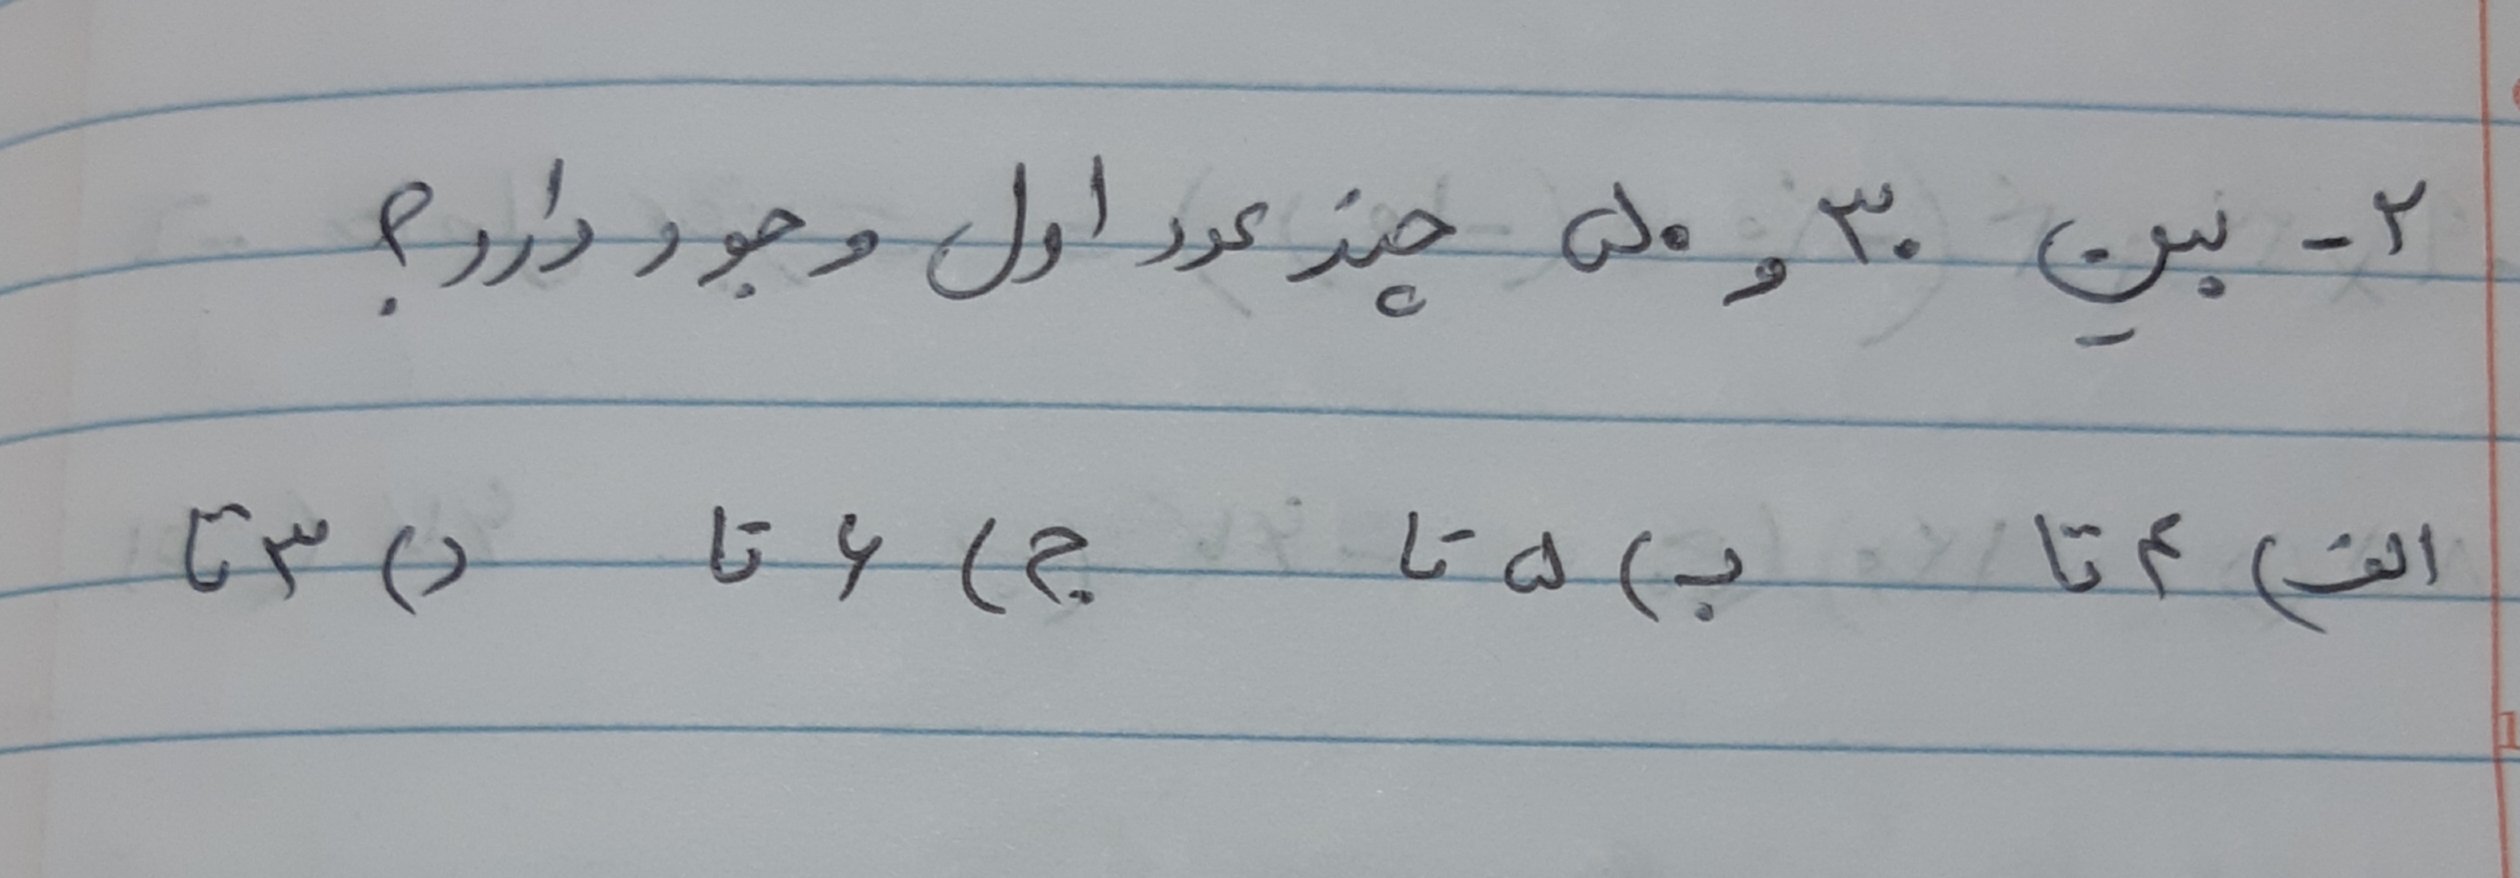 ۲- بین ۳۰ و ۵۰ چند عدد اول وجود دارد؟
الف) ۴ تا ب) ۵ تا ج) ۶ تا د) ۳ تا